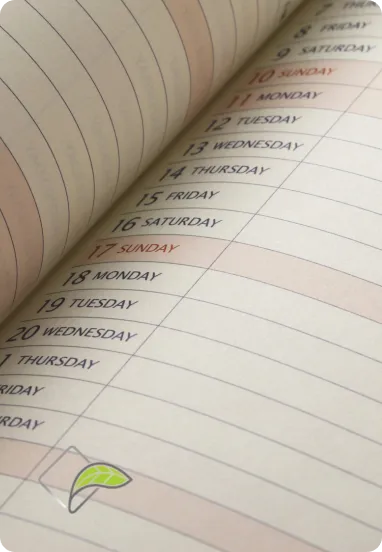 7 THUR
8 FRIDAY
9 SATURDAY
10 SUNDAY
11 MONDAY
12 TUESDAY
13 WEDNESDAY
14 THURSDAY
15 FRIDAY
16 SATURDAY
17 SUNDAY
18 MONDAY
19 TUESDAY
20 WEDNESDAY
1 THURSDAY
RIDAY
RDAY